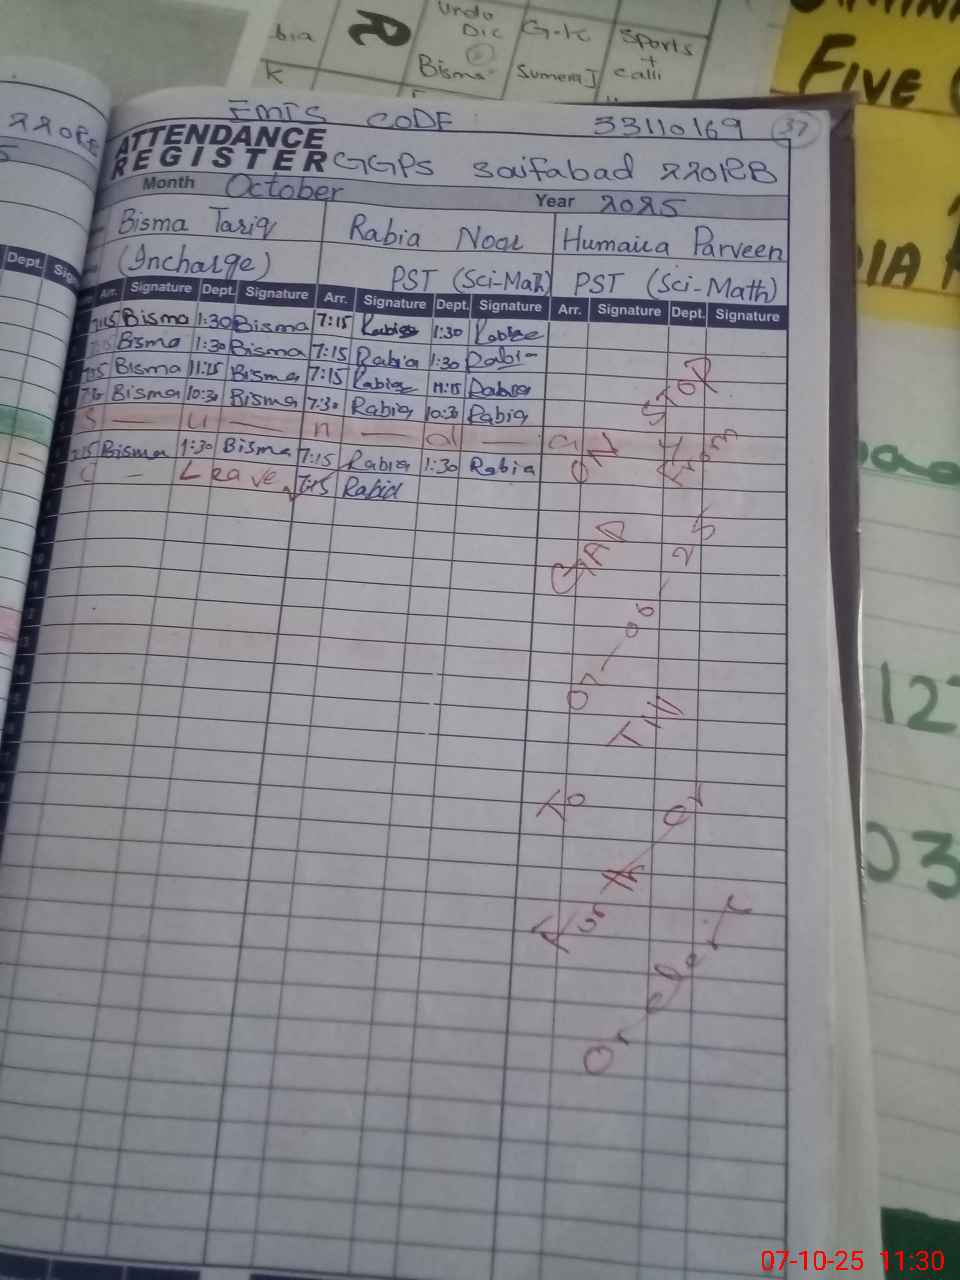 Urdo
bia Dic G-K Sports
+
K Bisma Sumera J calli
FIVE
EMIS CODE 33110169 37
ATTENDANCE
REGISTER GGPS Saifabad 220RB
Month October Year 2025
Bisma Tariq Rabia Noor Humaira Parveen
(Incharge) PST (Sci-Math) PST (Sci-Math)
Dept. Arr. Signature Dept. Signature Arr. Signature Dept. Signature Arr. Signature Dept. Signature
7:15 Bisma 1:30 Bisma 7:15 Rabia 1:30 Rabia
Bisma 1:30 Bisma 7:15 Rabia 1:30 Rabia
7:15 Bisma 11:15 Bisma 7:15 Rabia 11:15 Rabia
7:30 Bisma 10:30 Bisma 7:30 Rabia 10:30 Rabia
S — u — n — d — a
7:15 Bisma 1:30 Bisma 7:15 Rabia 1:30 Rabia
C — Leave 7:15 Rabia
ON STOP
From
07-08-25
Till
To
Further or
Order
127
03
07-10-25 11:30